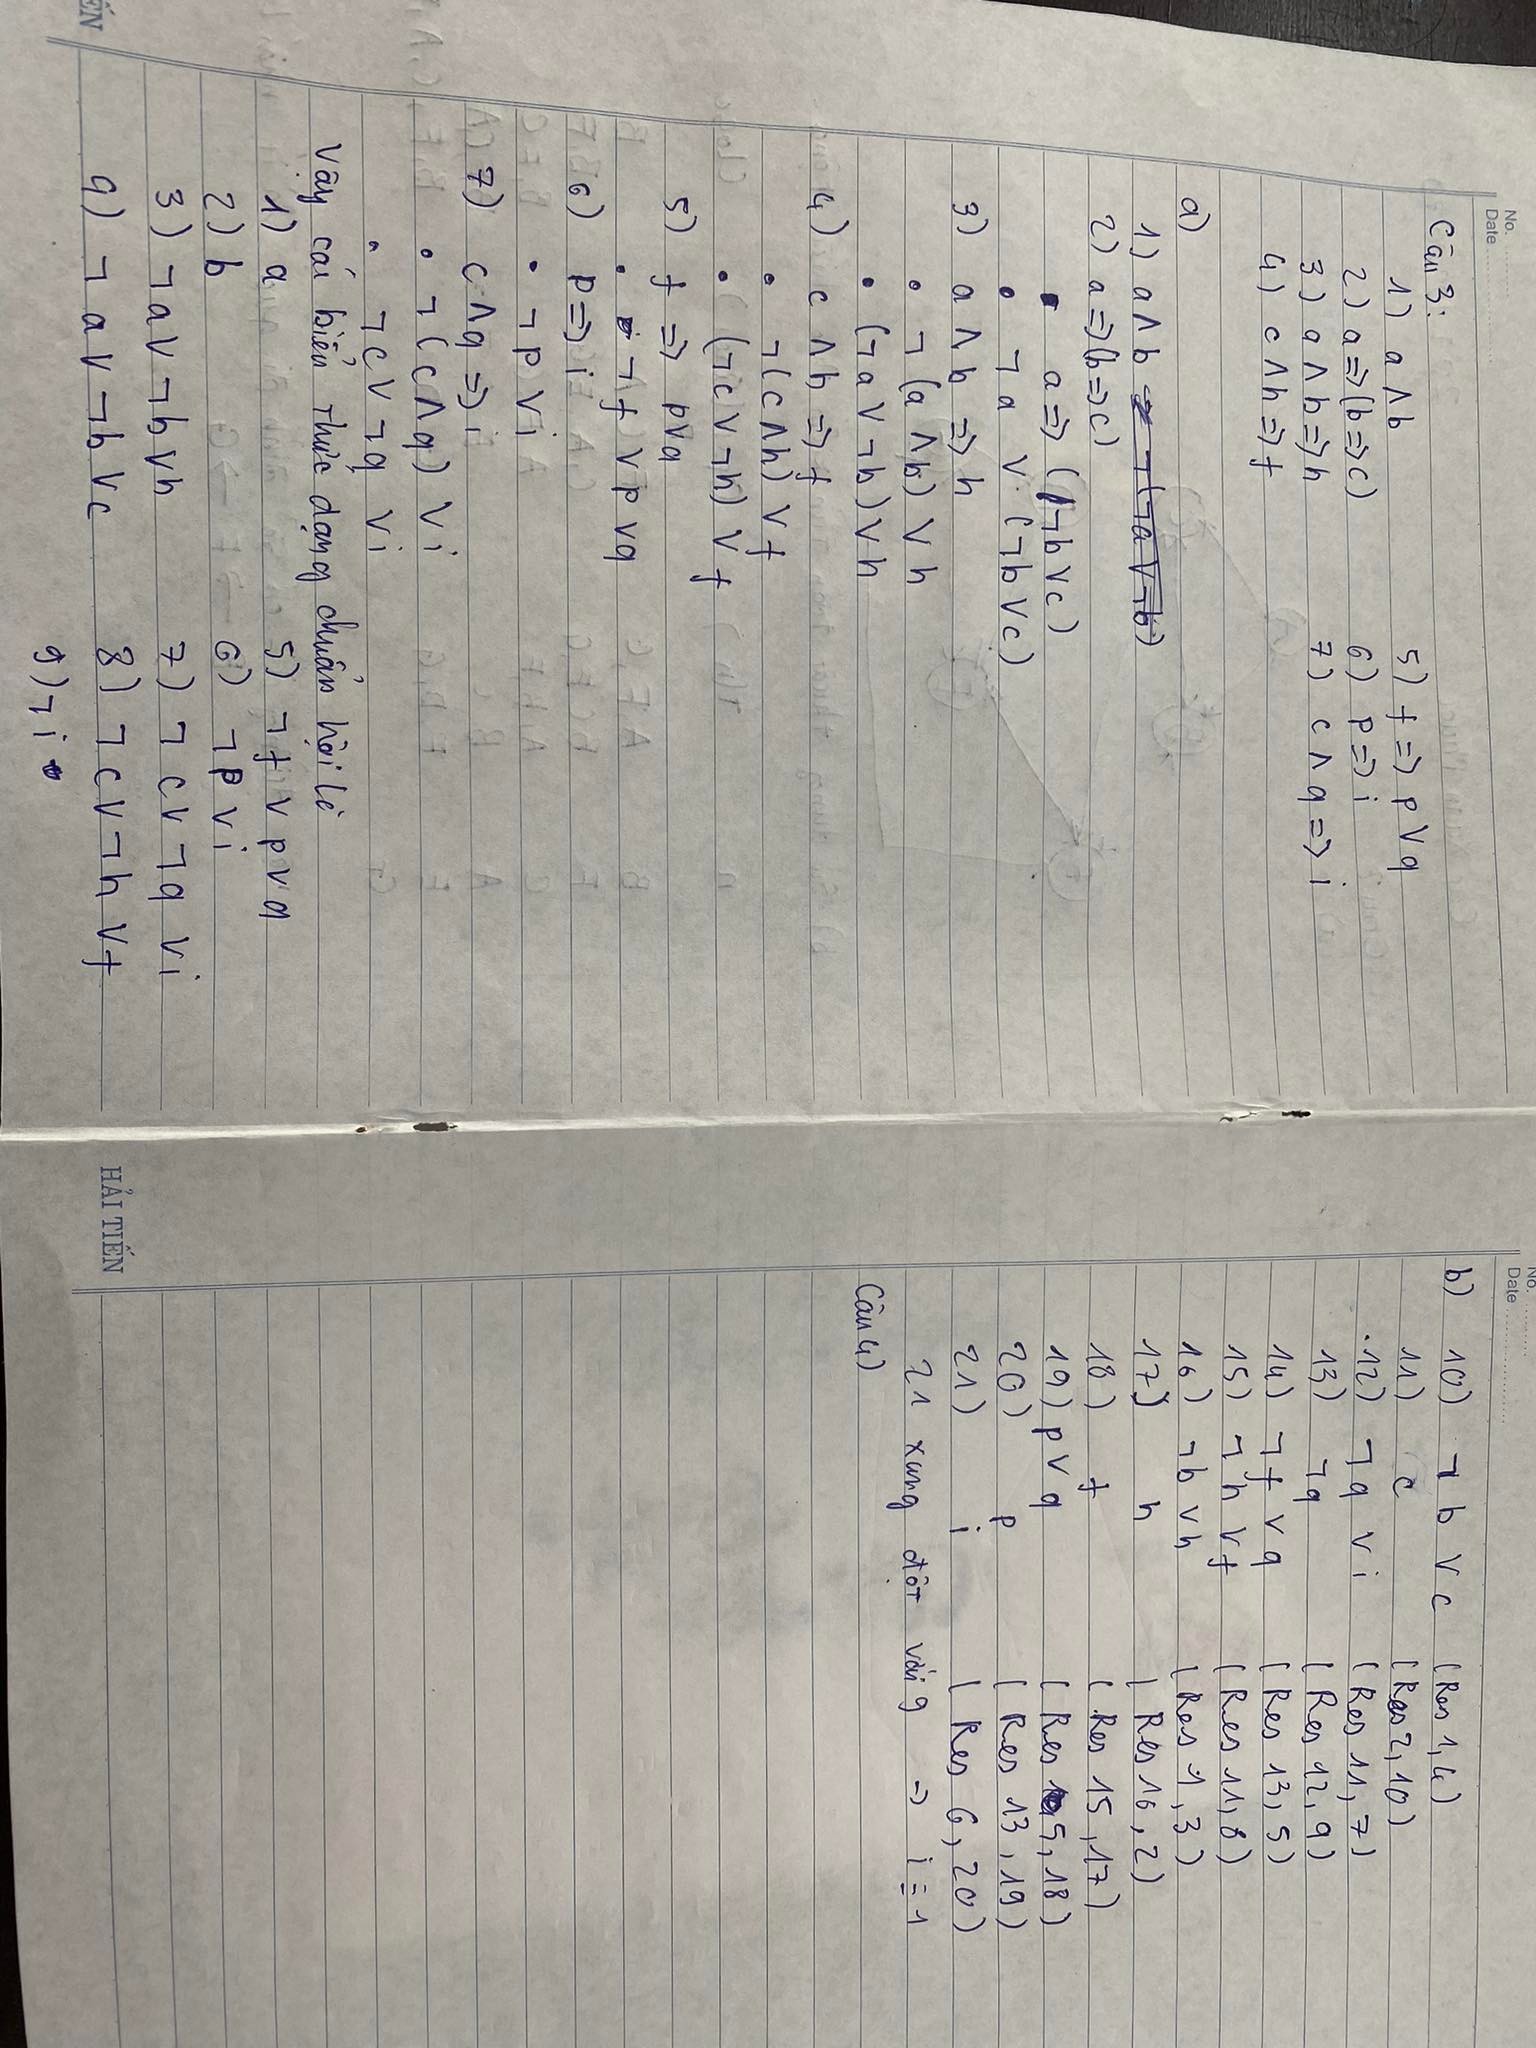 No.
Date
Câu 3:
1) a ∧ b
2) a => (b => c)
3) a ∧ b => h
4) c ∧ h => f
5) f => p ∨ q
6) p => i
7) c ∧ q => i
a)
1) a ∧ b
2) a => (b => c)
• a => (¬b ∨ c)
• ¬a ∨ (¬b ∨ c)
3) a ∧ b => h
• ¬(a ∧ b) ∨ h
• (¬a ∨ ¬b) ∨ h
4) c ∧ h => f
• ¬(c ∧ h) ∨ f
• (¬c ∨ ¬h) ∨ f
5) f => p ∨ q
• ¬f ∨ p ∨ q
6) p => i
• ¬p ∨ i
7) c ∧ q => i
• ¬(c ∧ q) ∨ i
• ¬c ∨ ¬q ∨ i
Vậy các biểu thức dạng chuẩn hội là
1) a
2) b
3) ¬a ∨ ¬b ∨ h
4) ¬a ∨ ¬b ∨ c
5) ¬f ∨ p ∨ q
6) ¬p ∨ i
7) ¬c ∨ ¬q ∨ i
8) ¬c ∨ ¬h ∨ f
9) ¬i
No.
Date
b) 10) ¬b ∨ c (Res 1, 4)
11) c (Res 2, 10)
12) ¬q ∨ i (Res 11, 7)
13) ¬q (Res 12, 9)
14) ¬f ∨ q (Res 13, 5)
15) ¬h ∨ f (Res 11, 8)
16) ¬b ∨ h (Res 1, 3)
17) h (Res 16, 2)
18) f (Res 15, 17)
19) p ∨ q (Res 5, 18)
20) p (Res 13, 19)
21) i (Res 6, 20)
21 xung đột với 9 => i = 1
Câu 4)
HẢI TIẾN